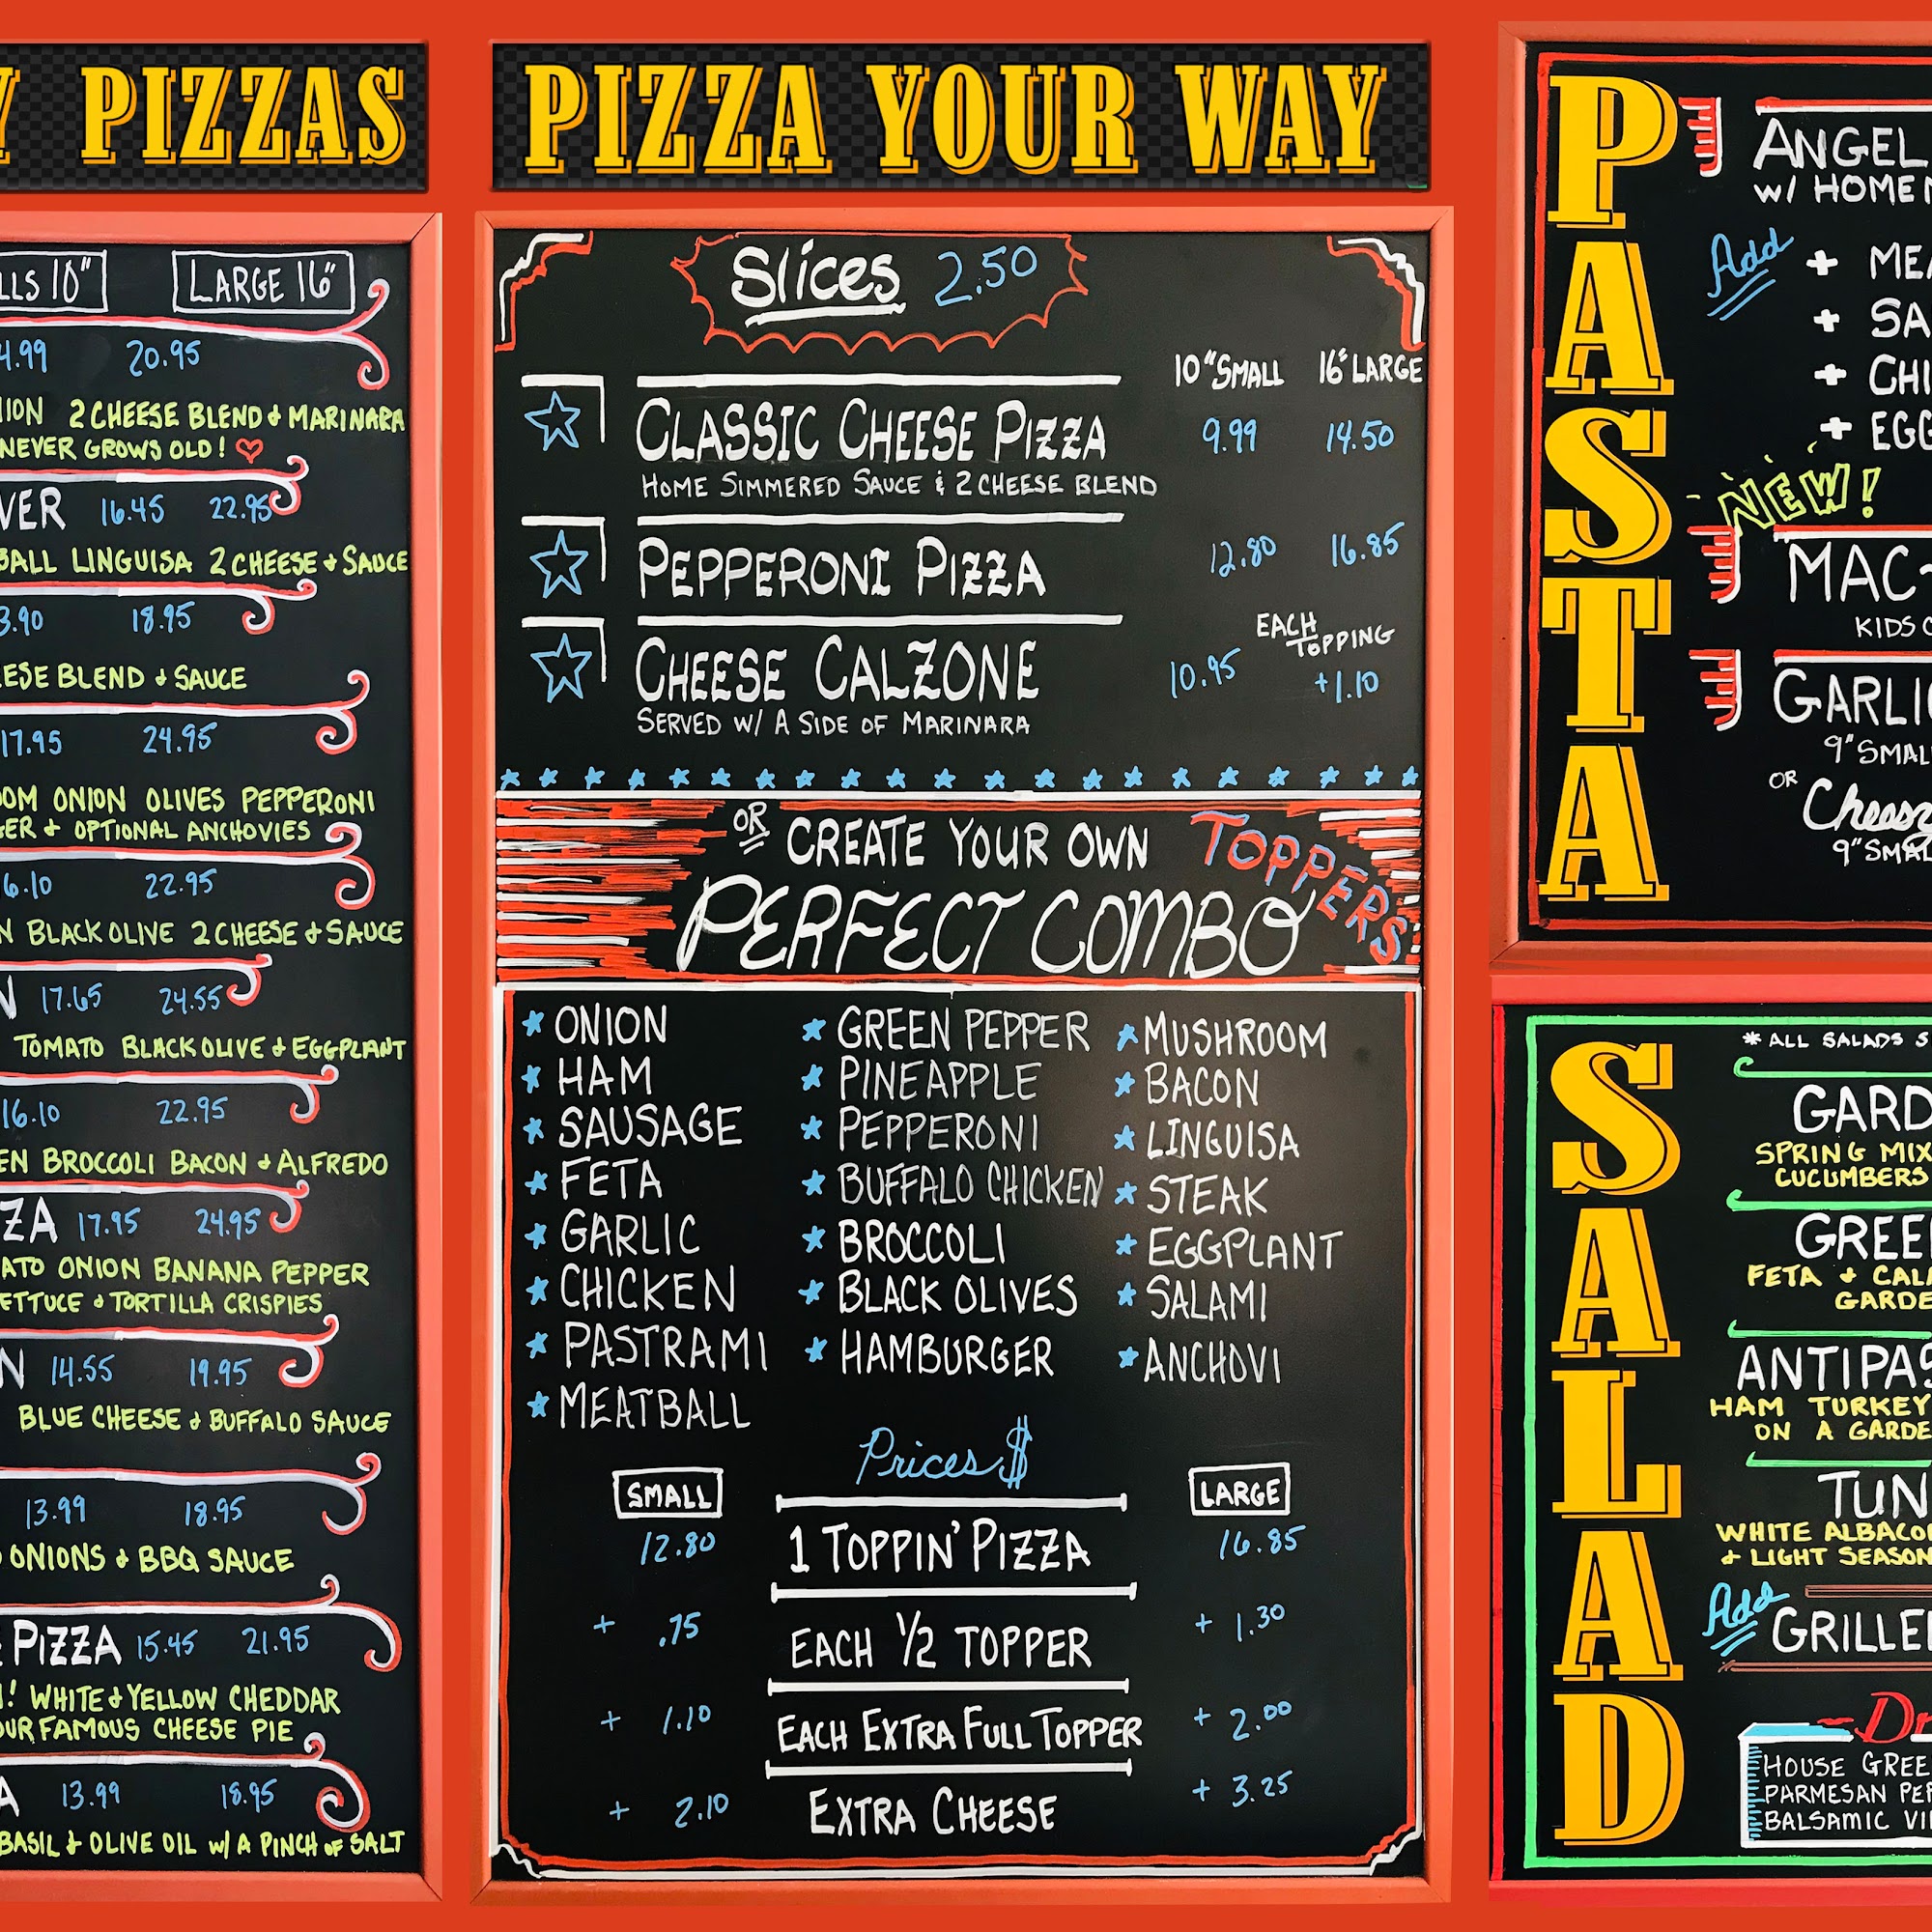 PIZZAS
LARGE 16"
20.95
2 CHEESE BLEND & MARINARA
NEVER GROWS OLD!
16.45 22.95
LINGUISA 2 CHEESE & SAUCE
18.95
BLEND & SAUCE
17.95 24.95
ONION OLIVES PEPPERONI
& OPTIONAL ANCHOVIES
22.95
BLACK OLIVE 2 CHEESE & SAUCE
17.65 24.55
TOMATO BLACK OLIVE & EGGPLANT
16.10 22.95
BROCCOLI BACON & ALFREDO
17.95 24.95
ONION BANANA PEPPER
& TORTILLA CRISPIES
14.55 19.95
BLUE CHEESE & BUFFALO SAUCE
13.99 18.95
ONIONS & BBQ SAUCE
PIZZA 15.45 21.95
WHITE & YELLOW CHEDDAR
OUR FAMOUS CHEESE PIE
13.99 18.95
BASIL & OLIVE OIL W/ A PINCH OF SALT
PIZZA YOUR WAY
Slices 2.50
10" SMALL 16" LARGE
CLASSIC CHEESE PIZZA 9.99 14.50
HOME SIMMERED SAUCE & 2 CHEESE BLEND
PEPPERONI PIZZA 12.80 16.85
EACH TOPPING
CHEESE CALZONE 10.95 +1.10
SERVED W/ A SIDE OF MARINARA
OR CREATE YOUR OWN
PERFECT COMBO
TOPPERS
ONION GREEN PEPPER MUSHROOM
HAM PINEAPPLE BACON
SAUSAGE PEPPERONI LINGUISA
FETA BUFFALO CHICKEN STEAK
GARLIC BROCCOLI EGGPLANT
CHICKEN BLACK OLIVES SALAMI
PASTRAMI HAMBURGER ANCHOVI
MEATBALL
Prices $
SMALL LARGE
12.80 1 TOPPIN' PIZZA 16.85
+ .75 EACH 1/2 TOPPER + 1.30
+ 1.10 EACH EXTRA FULL TOPPER + 2.00
+ 2.10 EXTRA CHEESE + 3.25
PASTA
ANGEL
W/
Add
+
+
+
+
NEW!
MAC
KIDS
9"
OR
9"
SALAD
* ALL SALADS
SPRING MIX
CUCUMBERS
FETA &
HAM TURKEY
ON A
WHITE
& LIGHT
Add
HOUSE
PARMESAN
BALSAMIC